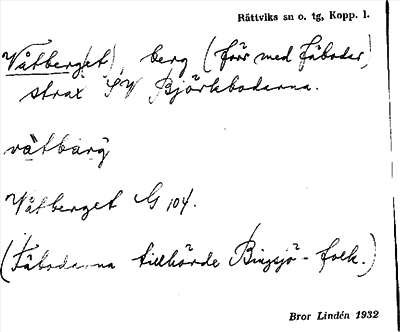 Rättviks sn o. tg, Kopp. l.
Våtberget), berg (förr med fäbodar)
strax SV Björkbodarna.
våtbarg
Våtberget G 104.
(Fäbodarna tillhörde Bingsjö-folk.)
Bror Lindén 1932